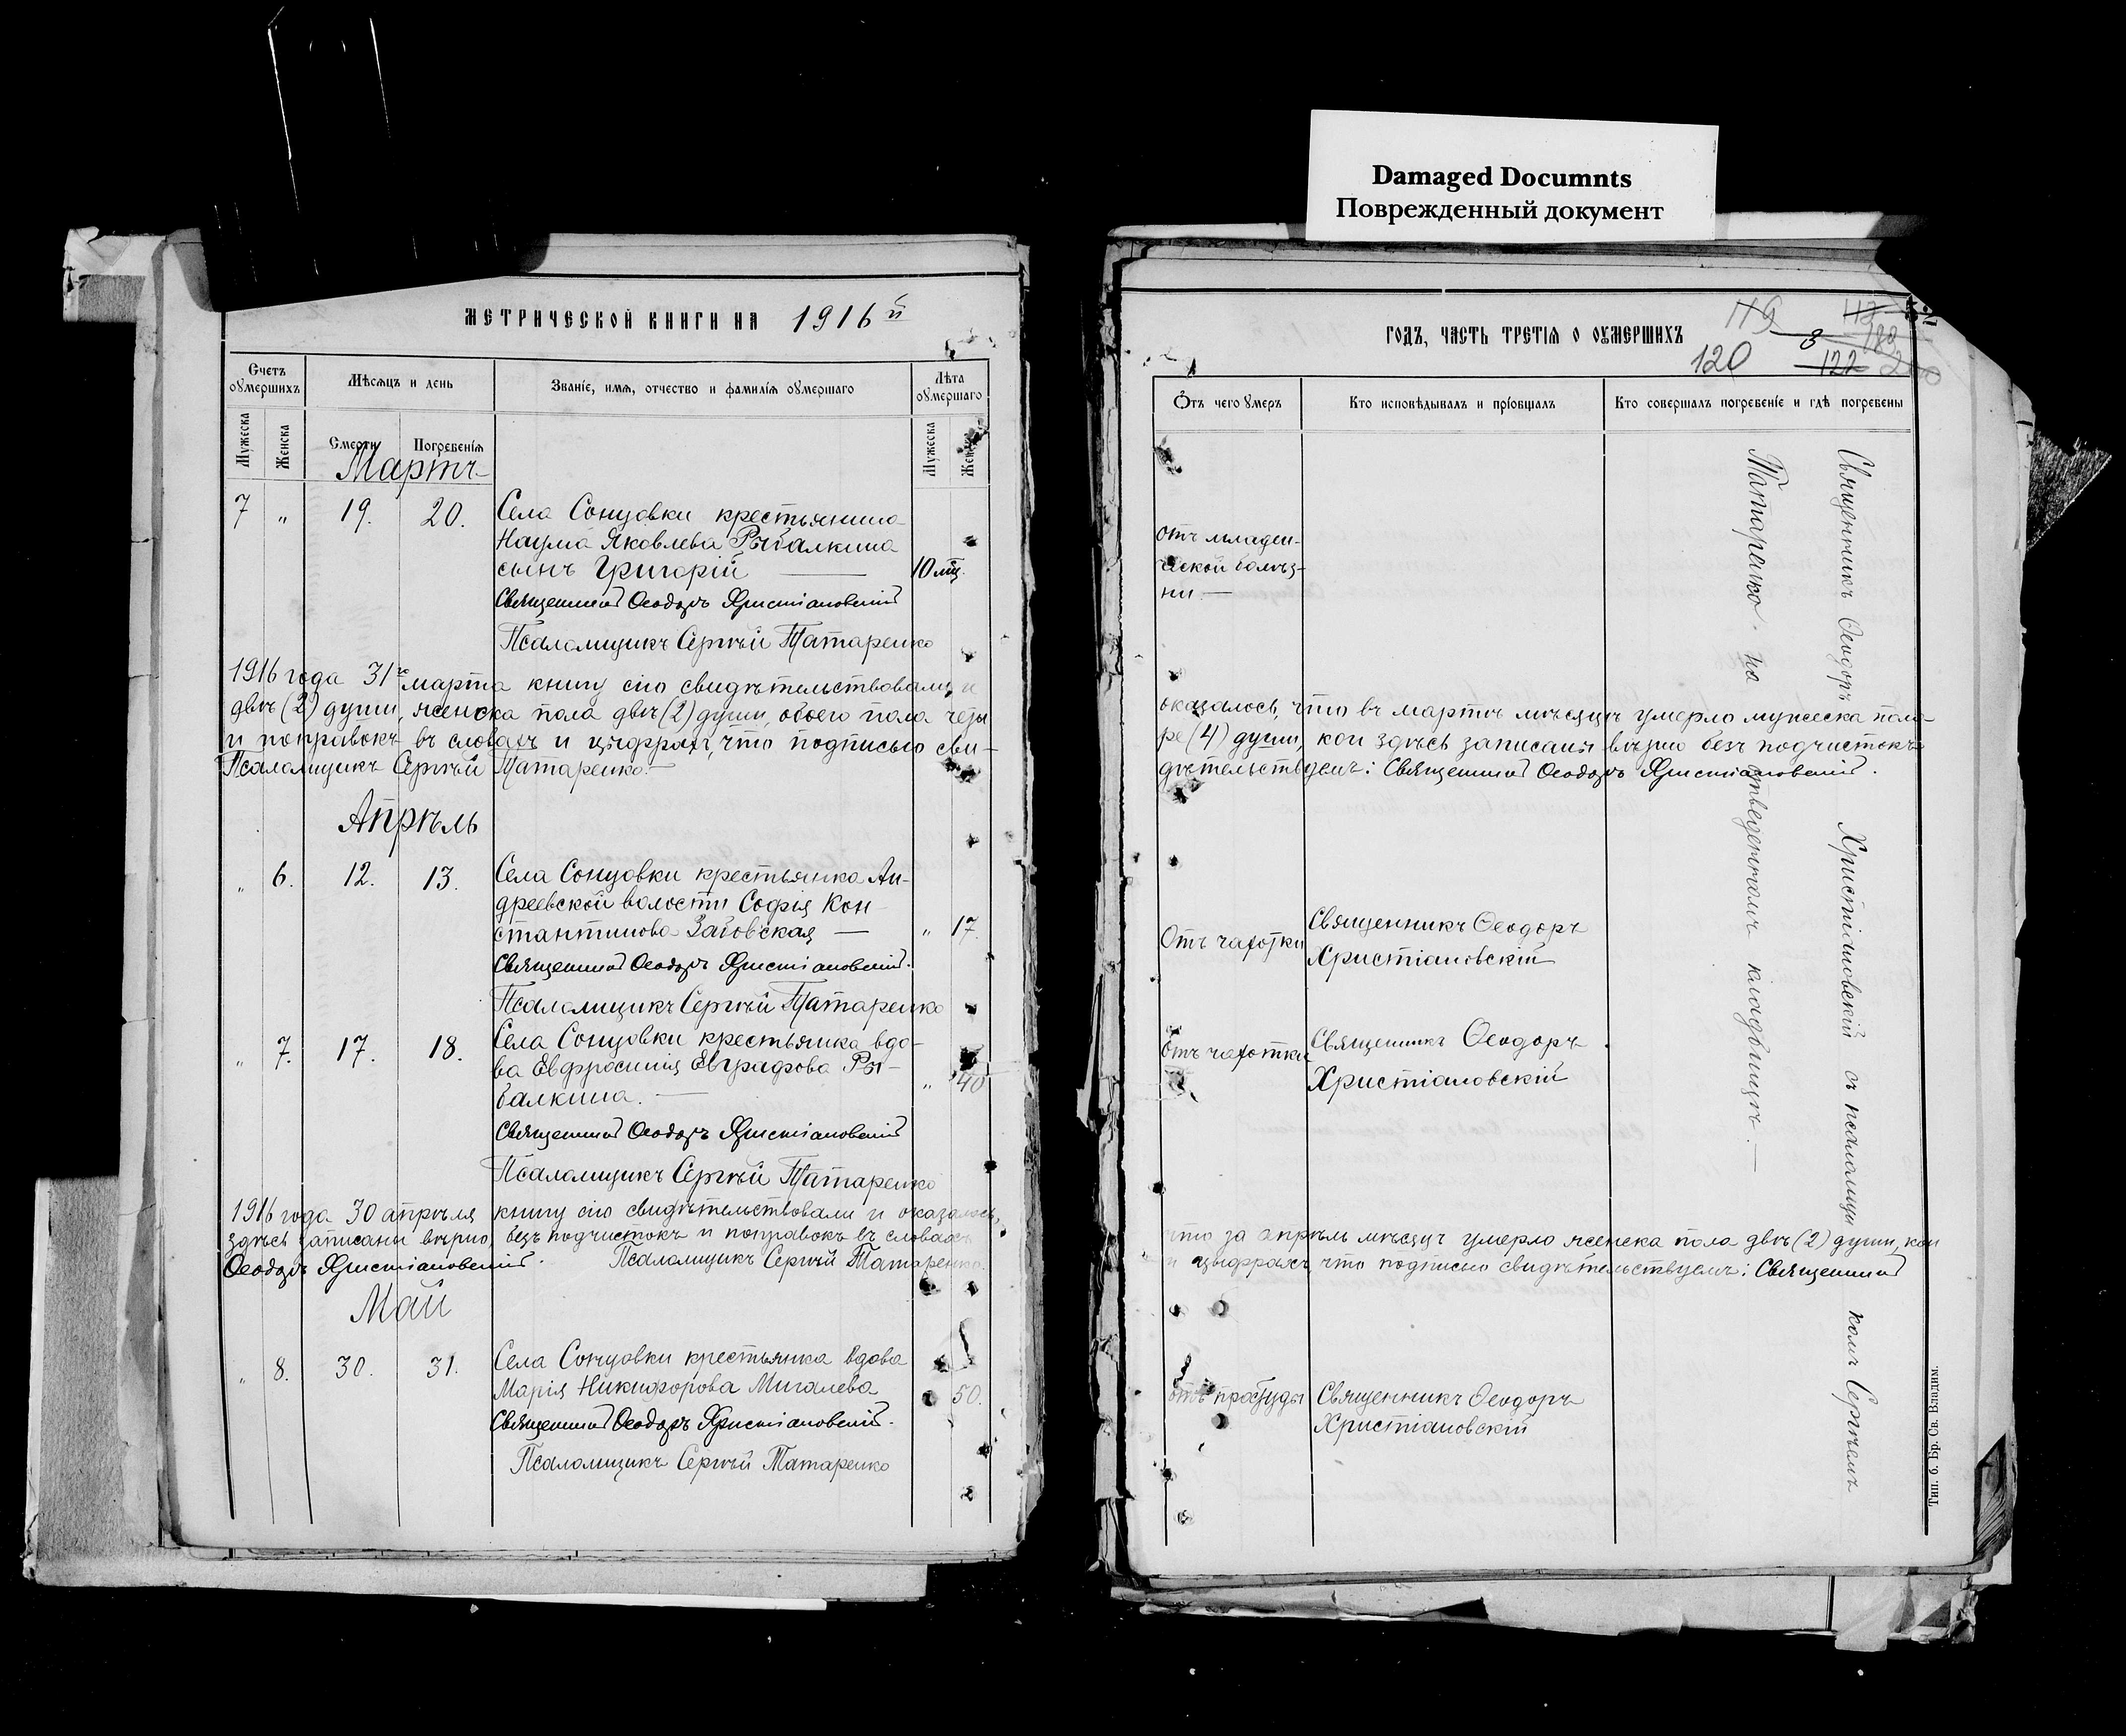 Damaged Documnts
Поврежденный документ
МЕТРИЧЕСКОЙ КНИГИ НА 1916й
Счетъ оумершихъ
Мѣсяцъ и день
Званіе, имя, отчество и фамилія оумершаго
Лѣта оумершаго
Мужеска
Женска
Смерти
Погребенія
Мужеска
Женска
Мартъ
7 „ 19. 20. Села Сонцовки крестьянина
Наума Яковлева Рыбалкина
сынъ Григорій — 10 мц.
Священникъ Ѳеодоръ Христіановскій
Псаломщикъ Сергѣй Татаренко
1916 года 31го марта книгу сію свидѣтельствовали и
двѣ (2) души, женска пола двѣ (2) души, обоего пола четы
и поправокъ въ словахъ и цыфрахъ, что подписью сви-
Псаломщикъ Сергѣй Татаренко.—
Апрѣль
„ 6. 12. 13. Села Сонцовки крестьянка Ан-
дреевской волости Софія Кон-
стантинова — „ 17.
Священникъ Ѳеодоръ Христіановскій.
Псаломщикъ Сергѣй Татаренко
„ 7. 17. 18. Села Сонцовки крестьянка вдо-
ва Евфросинія Евграфова Ры-
балкина. — „ 40
Священникъ Ѳеодоръ Христіановскій
Псаломщикъ Сергѣй Татаренко
1916 года 30 апрѣля книгу сію свидѣтельствовали и оказалось,
здѣсь записаны вѣрно, безъ подчистокъ и поправокъ въ словахъ
Ѳеодоръ Христіановскій. Псаломщикъ Сергѣй Татаренко.
Май
„ 8. 30. 31. Села Сонцовки крестьянка вдова
Марія Никифорова Мигалева 50.
Священникъ Ѳеодоръ Христіановскій.
Псаломщикъ Сергѣй Татаренко
ГОДЪ, ЧАСТЬ ТРЕТІЯ О ОУМЕРШИХЪ
119
113
3
183
120
122
200
Отъ чего умеръ
Кто исповѣдывалъ и пріобщалъ
Кто совершалъ погребеніе и гдѣ погребены
отъ младен-
ческой болѣз-
ни.—
оказалось, что въ мартѣ мѣсяцѣ умерло мужеска пола
ре (4) души, кои здѣсь записаны вѣрно безъ подчистокъ
дѣтельствуемъ: Священникъ Ѳеодоръ Христіановскій.
Отъ чахотки Священникъ Ѳеодоръ
Христіановскій
отъ чахотки Священникъ Ѳеодоръ
Христіановскій
что за апрѣль мѣсяцъ умерло женска пола двѣ (2) души, кои
и цыфрахъ, что подписью свидѣтельствуемъ: Священникъ
отъ простуды Священникъ Ѳеодоръ
Христіановскій
Священникъ Ѳеодоръ Христіановскій съ псаломщикомъ Сергѣемъ
Татаренко на отведенномъ кладбищѣ.—
Тип. б. Бр. Св. Владим.